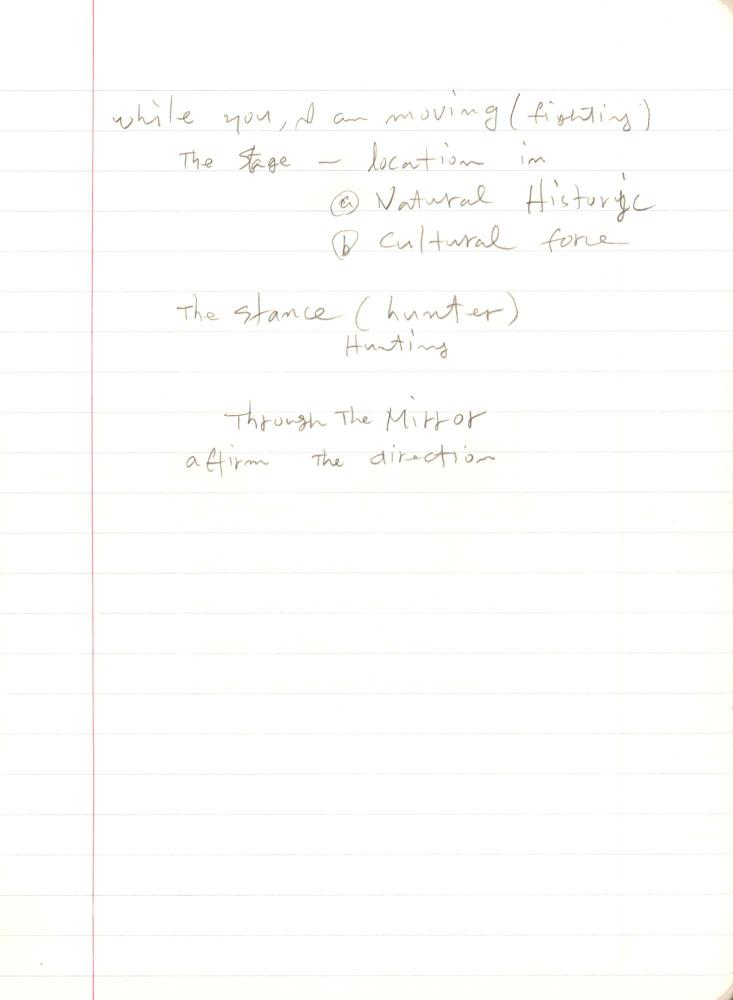 while you, I am moving (fighting)
The stage – location in
ⓐ Natural Historic
ⓑ Cultural force
The stance (hunter)
Hunting
Through The Mirror
affirm The direction